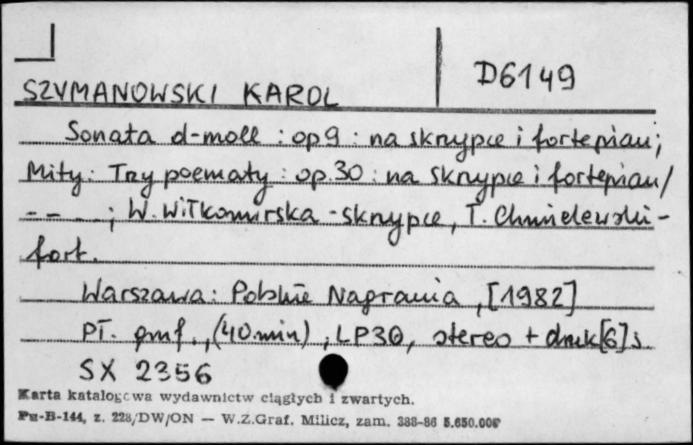 D6149
SZYMANOWSKI KAROL
Sonata d-moll : op 9 : na skrzypce i fortepian;
Mity : Trzy poematy : op. 30 : na skrzypce i fortepian /
-- __ ; W. Wiłkomirska - skrzypce, T. Chmielewski -
fort.
Warszawa : Polskie Nagrania, [1982]
Pł. gmf., (40 min), LP30, stereo + druk [6] s.
SX 2356
Karta katalogowa wydawnictw ciągłych i zwartych.
Pu-B-144, z. 228/DW/ON — W.Z.Graf. Milicz, zam. 388-86 5.650.000